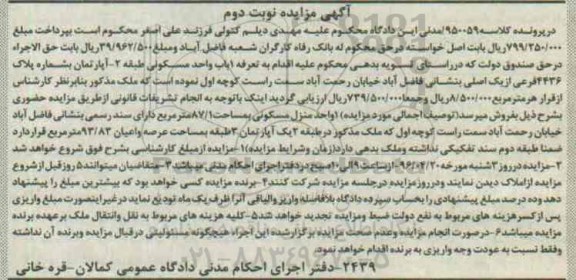 آگهی مزایده نوبت دوم
درپرونده کلاسه ۹۵۰۰۵۹/مدنی این دادگاه محکوم علیه مهدی دیلم کتولی فرزند علی اصغر محکوم است بپرداخت مبلغ
۷۹۹/۲۵۰/۰۰۰ریال بابت اصل خواسته درحق محکوم له بانک رفاه کارگران شعبه فاضل آباد ومبلغ۳۹/۹۶۲/۵۰۰ریال بابت حق الاجراء
درحق صندوق دولت که درراستای تسویه بدهی محکوم علیه اقدام به تعرفه ۱باب واحد مسکونی طبقه ۲-آپارتمان بشماره پلاک
۴۴۳۶فرعی ازیک اصلی بنشانی فاضل آباد خیابان رحمت آباد سمت راست کوچه اول نموده است که ملک مذکور بنابرنظر کارشناس
ازقرار هرمترمربع۸/۵۰۰/۰۰۰ریال وجمعا۷۳۹/۵۰۰/۰۰۰ریال ارزیابی گردید اینک باتوجه به انجام تشریفات قانونی ازطریق مزایده حضوری
بشرح ذیل بفروش میرسد(توصیف اجمالی مورد مزایده) ۱واحد منزل مسکونی بمساحت۸۷/۱متر مربع دارای سند رسمی بنشانی فاضل آباد
خیابان رحمت آباد سمت راست کوچه اول که ملک مذکور درطبقه ۲یک آپارتمان ۳طبقه بمساحت عرصه واعیان ۹۳/۸۳مترمربع قراردارد
ضمنا طبقه دوم سند تفکیکی نداشته وملک بدهی دارد(زمان وشرایط مزایده)۱-مزایده ازمبلغ کارشناسی بشرح فوق شروع خواهد شد
۲-مزایده درروز۳شنبه مورخه ۹۶/۰۴/۲۰ازساعت۹الی۱۰صبح دردفتراجرای احکام مدنی میباشد ۳-متقاضیان میتوانند۵روزقبل ازشروع
مزایده ازاملاک دیدن نمایند ودرروزمزایده درجلسه مزایده شرکت کنند۴-برنده مزایده کسی خواهد بود که بیشترین مبلغ را پیشنهاد
دهد وده درصد مبلغ پیشنهادی را بحساب سپرده دادگاه بلافاصله واریز والباقی آنرا ظرف یک ماه تودیع نماید درغیراینصورت مبلغ واریزی
پس ازکسرهزینه های مربوط به نفع دولت ضبط ومزایده تجدید خواهد شد۵-کلیه هزینه های مربوط به نقل وانتقال ملک برعهده برنده
مزایده میباشد۶-درصورت انجام مزایده وعدم صحت مزایده برگزارشده این اجراء هیچگونه مسئولیتی درقبال مزایده وبرنده آن نداشته
وفقط نسبت به عودت وجه واریزی به برنده اقدام خواهد نمود.
۲۴۳۹-دفتر اجرای احکام مدنی دادگاه عمومی کمالان-قره خانی